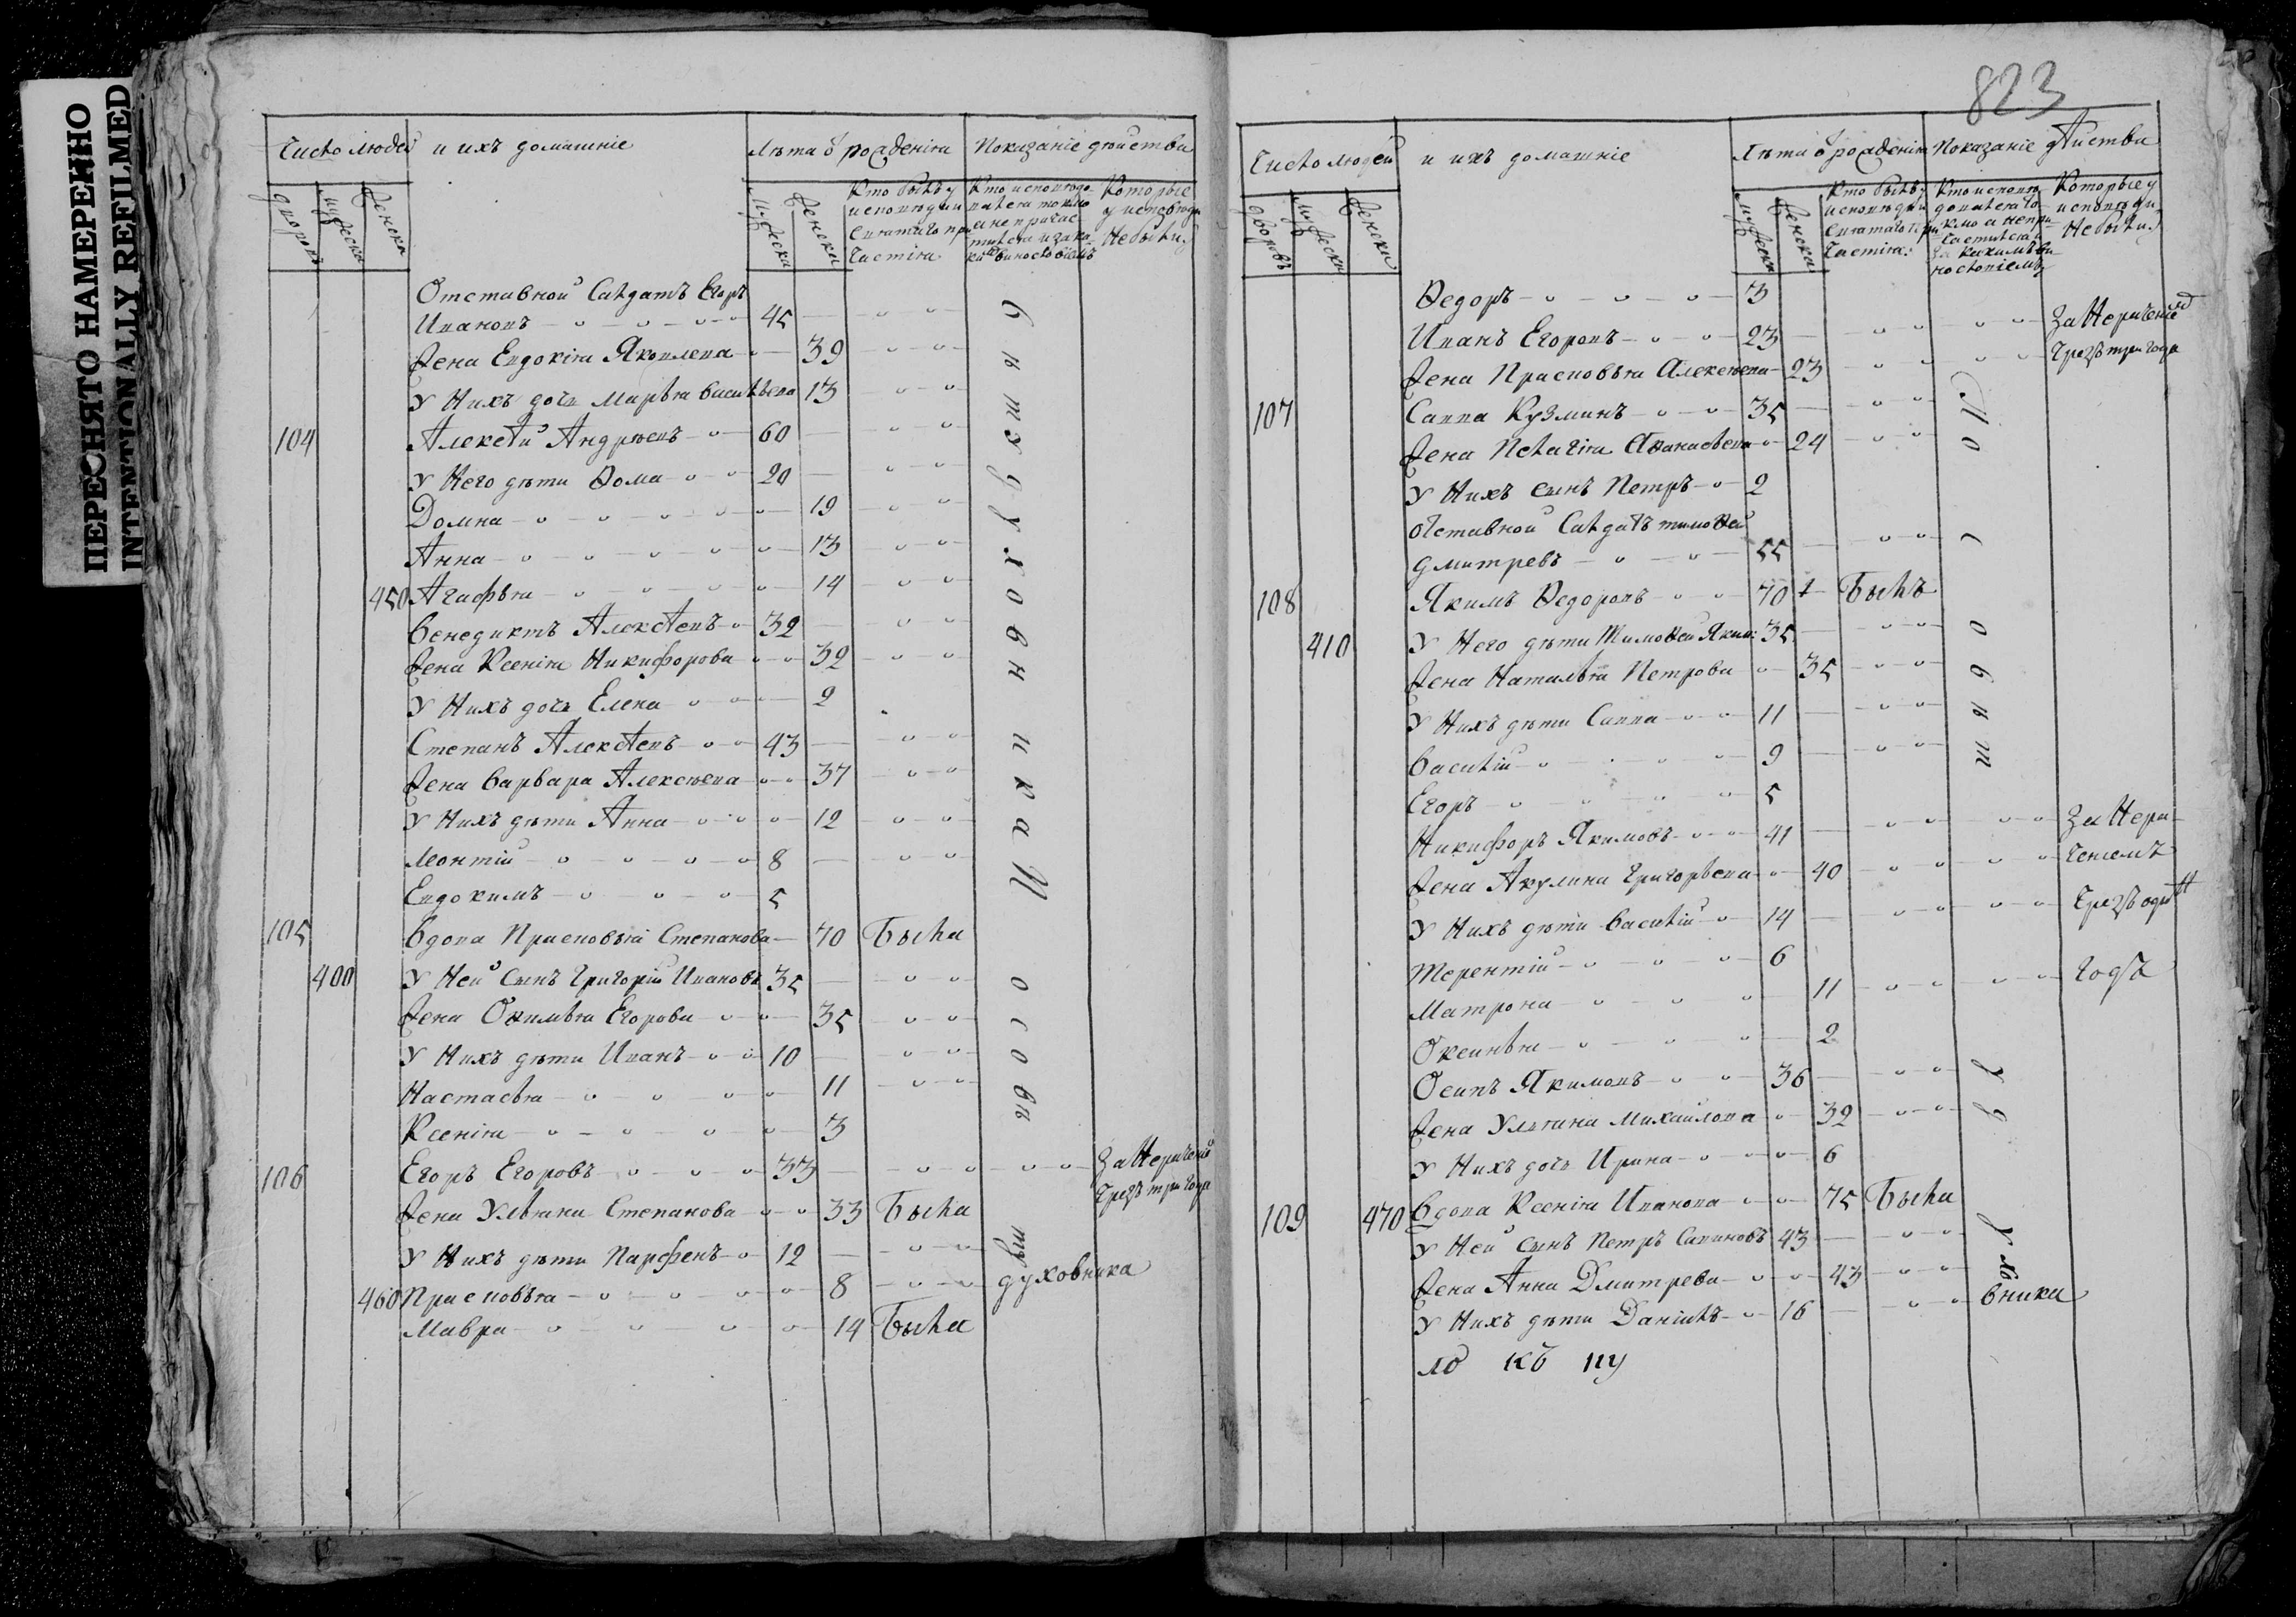 ПЕРЕСНЯТО НАМЕРЕННО
INTENTIONALLY REFILMED
Число людей и ихъ домашніе Лѣта ѿ рожденія Показаніе дѣйства
дворовъ мужеска женска мужеска женска
Кто былъ у исповѣди и святаго причастія
Кто исповѣдовался токмо а не причастился и за каковиностовіемъ
Которые у исповѣди не были
Отставной Салдатъ Егоръ
Ивановъ 45
Жена Евдокія Яковлева 39
У Нихъ дочь Марѳа Васильева 13
104 Алексѣй Андрѣевъ 60
У Него дѣти Ѳома 20
Домна 19
Анна 13
450 Агафья 14
Венедиктъ Алексѣевъ 32
Жена Ксенія Никифорова 32
У Нихъ дочь Елена 2
Степанъ Алексѣевъ 43
Жена Варвара Алексѣева 37
У Нихъ дѣти Анна 12
Леонтій 8
Евдокимъ 5
105 Вдова Прасковья Степанова 70 Была
400 У Ней Сынъ Григорій Ивановъ 35
Жена Офимья Егорова 35
У Нихъ дѣти Иванъ 10
Настасья 11
Ксенія 3
106 Егоръ Егоровъ 33 За Нераченіе
чрезъ три года
Жена Ульяна Степанова 33 Была
У Нихъ дѣти Парфенъ 12
460 Прасковья 8 духовника
Мавра 14 Была
823
Число людей и ихъ домашніе Лѣта ѿ рожденія Показаніе дѣйства
дворовъ мужеска женска мужеска женска
Кто былъ у исповѣди и святаго причастія
Которые у исповѣди не были
Ѳедоръ 3
Иванъ Егоровъ 23 За Нераченіе
Жена Прасковья Алексѣева 23 чрезъ три года
107 Савва Кузминъ 35
Жена Пелагія Аѳанасьева 24
У Нихъ сынъ Петръ 2
Отставной Салдатъ Тимоѳей
Дмитревъ 55
108 Якимъ Ѳедоровъ 70 Былъ
410 У Него дѣти Тимоѳей Яким: 35
Жена Наталья Петрова 35
У Нихъ дѣти Савва 11
Василій 9
Егоръ 5
Никифоръ Якимовъ 41 За Нера-
Жена Акулина Григорьева 40 ченіемъ
У Нихъ дѣти Василій 14 чрезъ одинъ
Терентій 6
Матрона 11 годъ
Оксинья 2
Осипъ Якимовъ 36
Жена Ульяна Михайлова 32
У Нихъ дочь Ирина 6
109 470 Вдова Ксенія Иванова 75 Была
У Ней сынъ Петръ Савиновъ 43
Жена Анна Дмитрева 43
У Нихъ дѣти Данилъ 16 вника